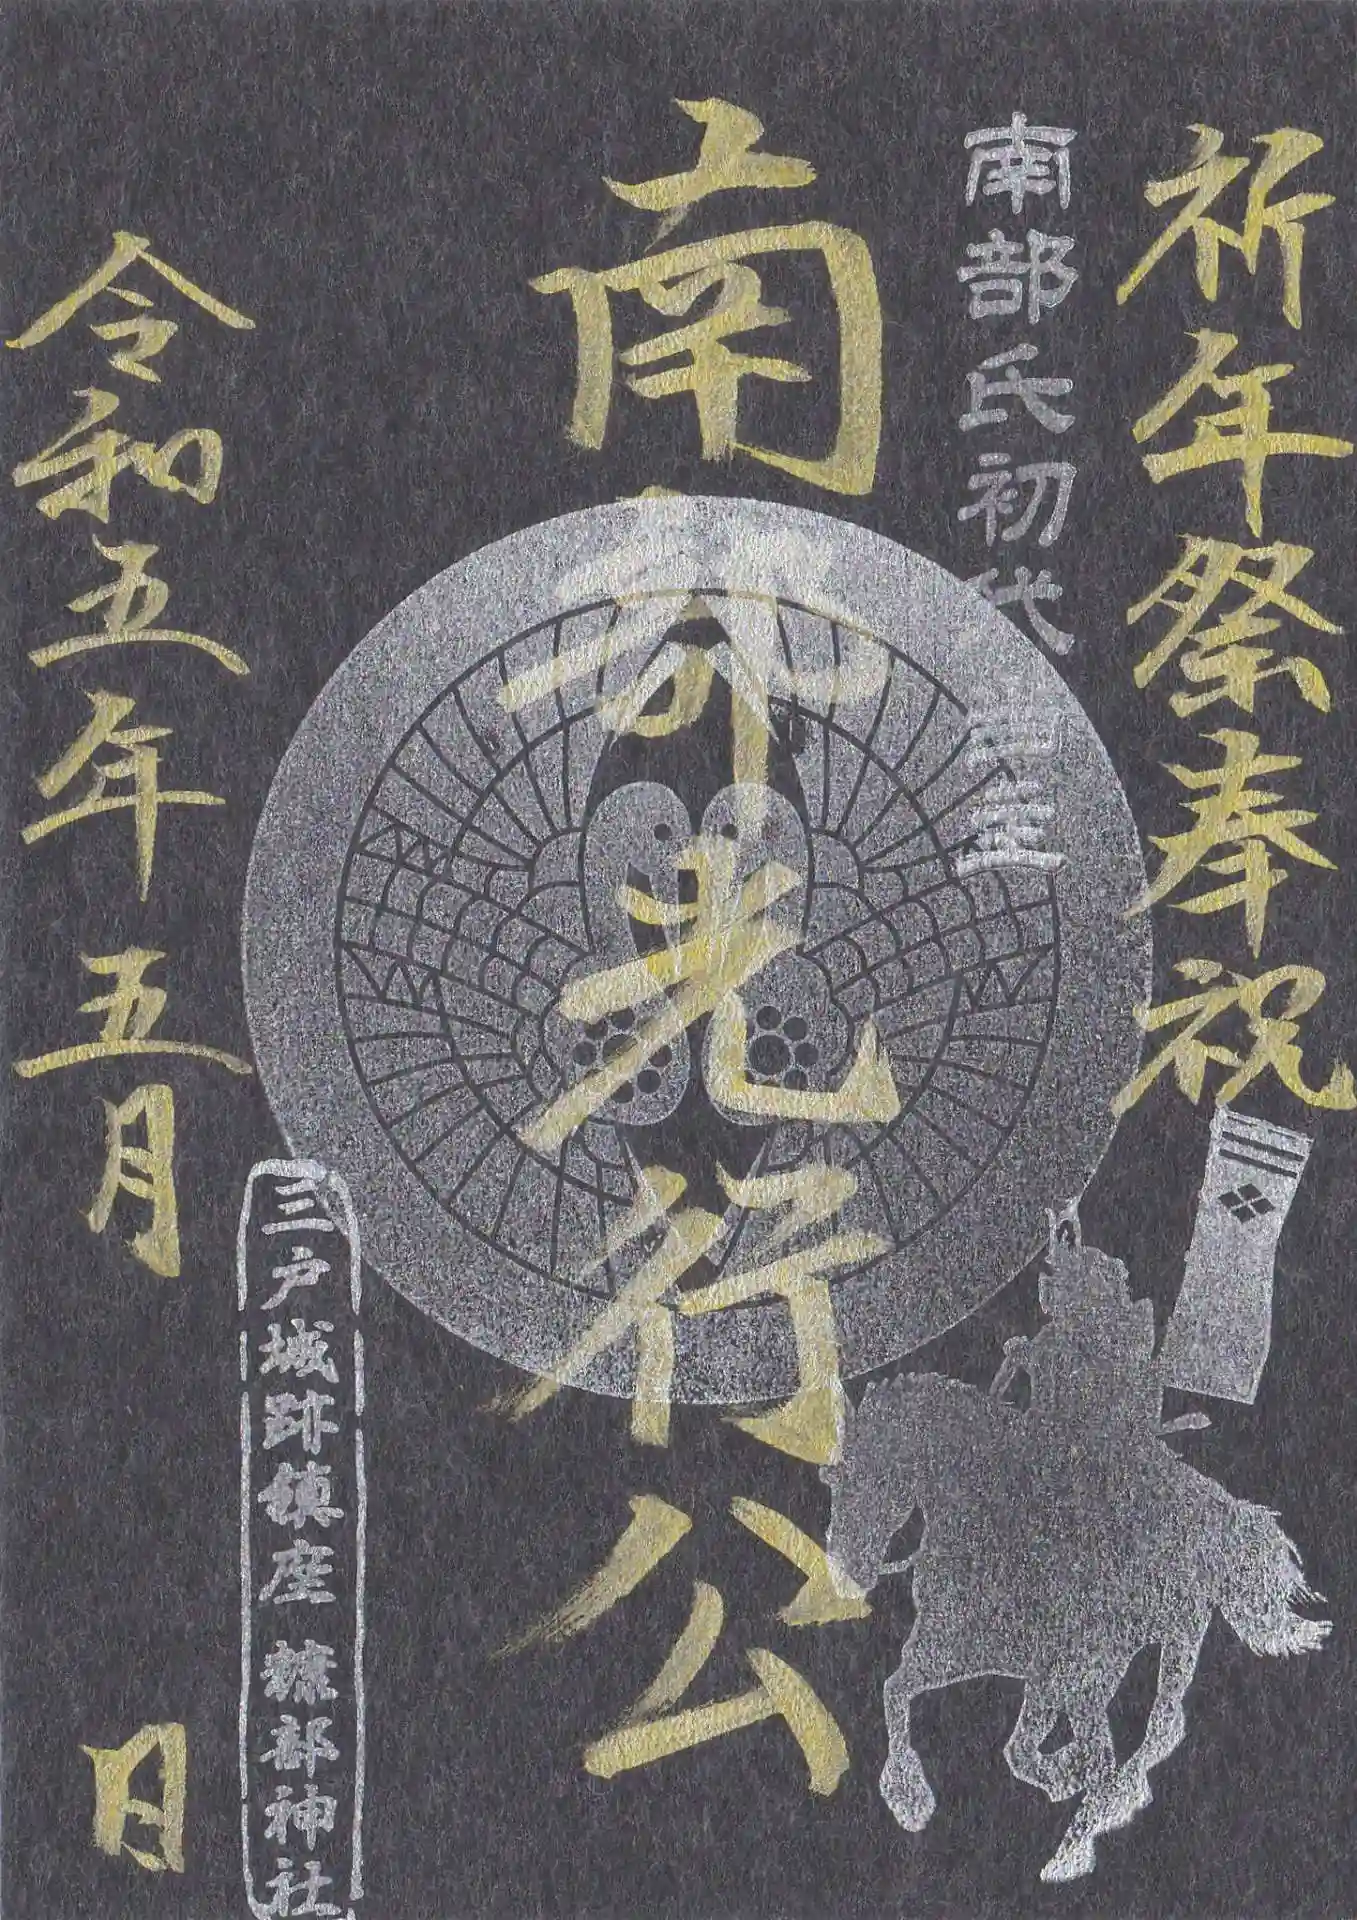 祈年祭奉祝
南部氏初代 当主
南部光行公
三戸城跡鎮座 糠部神社
令和五年 五月 日